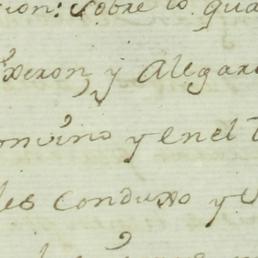 cion: sobre lo qua
dixeron, y Alegaro
convino y en el t
les conduxo y